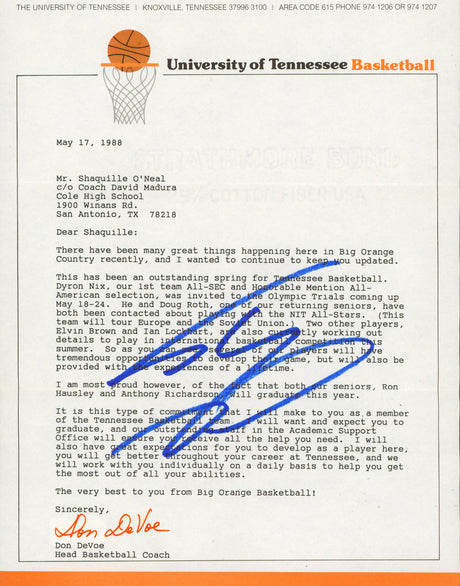 THE UNIVERSITY OF TENNESSEE | KNOXVILLE, TENNESSEE 37996 3100 | AREA CODE 615 PHONE 974 1206 OR 974 1207
University of Tennessee Basketball
May 17, 1988
Mr. Shaquille O'Neal
c/o Coach David Madura
Cole High School
1900 Winans Rd.
San Antonio, TX 78218
Dear Shaquille:
There have been many great things happening here in Big Orange
Country recently, and I wanted to continue to keep you updated.
This has been an outstanding spring for Tennessee Basketball.
Dyron Nix, our 1st team All-SEC and Honorable Mention All-
American selection, was invited to the Olympic Trials coming up
May 18-24. He and Doug Roth, one of our returning seniors, have
both been contacted about playing with the NIT All-Stars. (This
team will tour Europe and the Soviet Union.) Two other players,
Elvin Brown and Ian Lockhart, are also currently working out
details to play in international basketball competition this
summer. So as you can see, several of our players will have
tremendous opportunities to develop their game, but will also be
provided with the experiences of a lifetime.
I am most proud however, of the fact that both our seniors, Ron
Hausley and Anthony Richardson, will graduate this year.
It is this type of commitment that I will make to you as a member
of the Tennessee Basketball team. I will want and expect you to
graduate, and our outstanding staff in the Academic Support
Office will ensure you receive all the help you need. I will
also have great expectations for you to develop as a player here;
you will get better throughout your career at Tennessee, and we
will work with you individually on a daily basis to help you get
the most out of all your abilities.
The very best to you from Big Orange Basketball!
Sincerely,
Don DeVoe
Don DeVoe
Head Basketball Coach